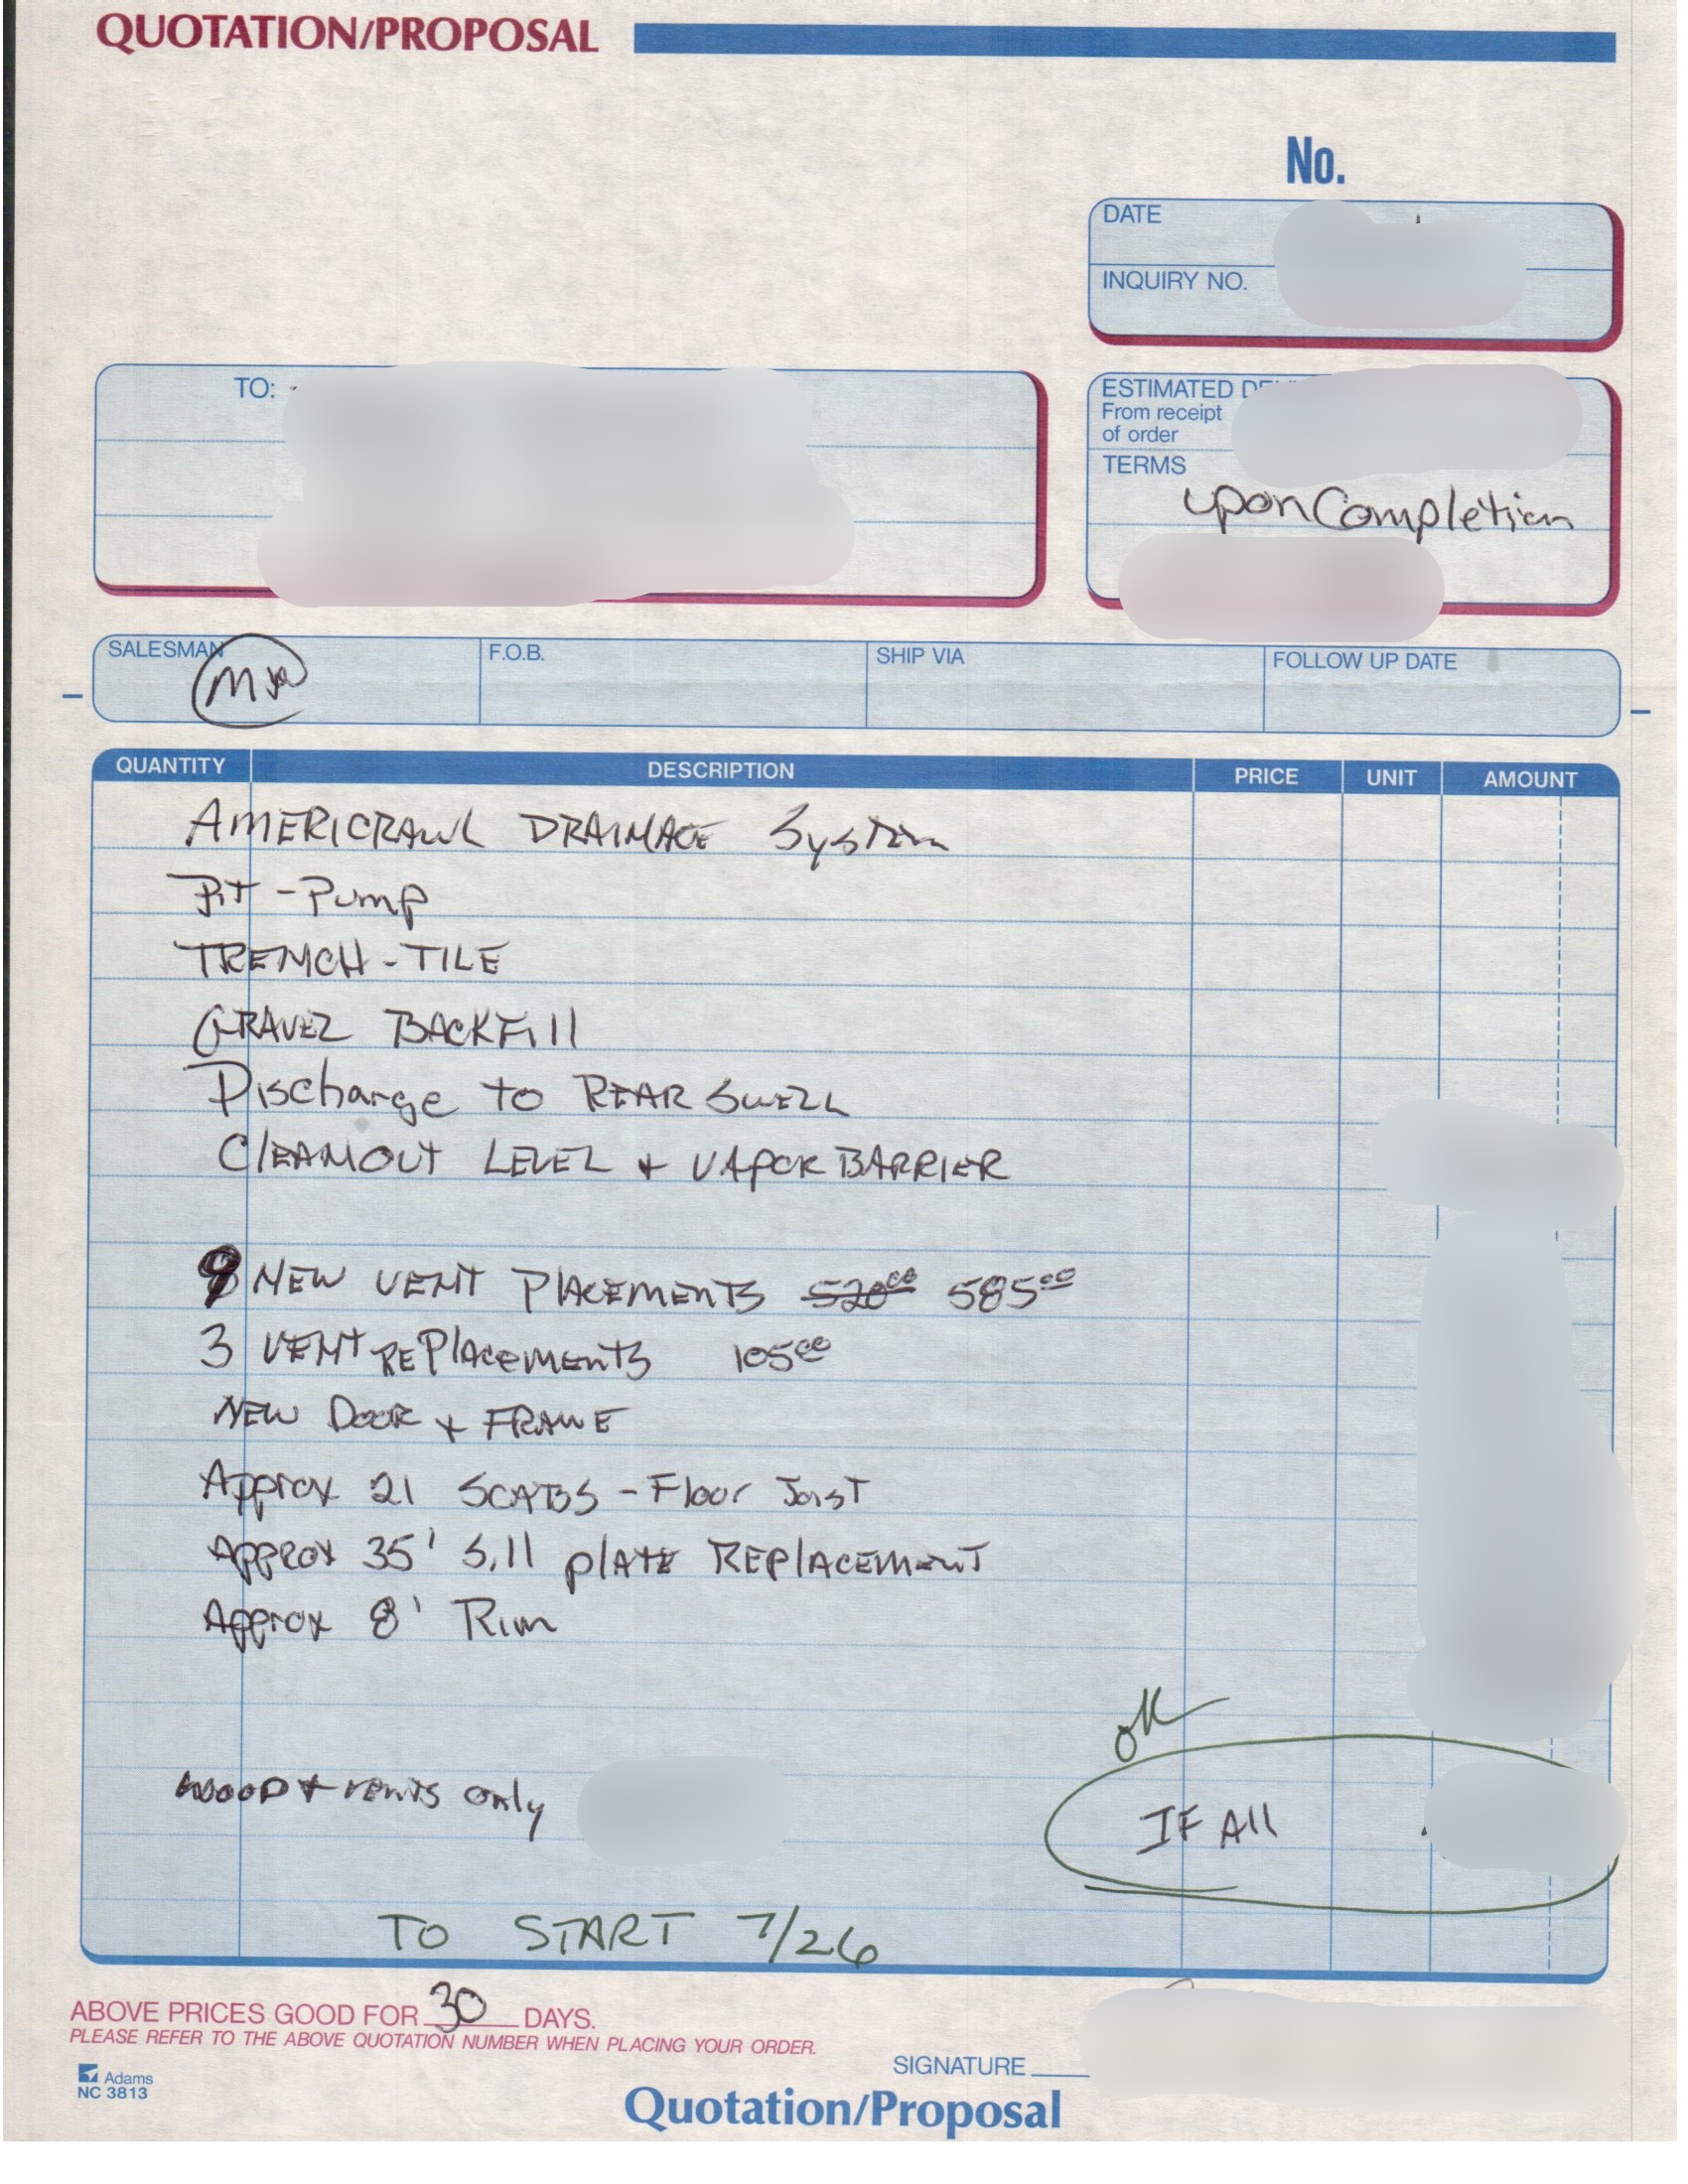 QUOTATION/PROPOSAL
No.
DATE
INQUIRY NO.
TO:
ESTIMATED
From receipt
of order
TERMS
upon Completion
SALESMAN
F.O.B.
SHIP VIA
FOLLOW UP DATE
QUANTITY DESCRIPTION PRICE UNIT AMOUNT
AMERICRAWL DRAINAGE System
Pit - Pump
TRENCH - TILE
GRAVEL BACKFill
Discharge to REAR SWELL
ClEANOUT LEVEL + VAPOR BARRIER
9 NEW VENT PlACEMENTS 520 00 585 00
3 VENT REPlACEMENTS 105 00
NEW DOOR + FRAME
Approx 21 SCABS - Floor Joist
APPROX 35' Sill plATE REPlACEMENT
Approx 8' Rim
OK
WOOD + vents only
IF All
TO START 7/26
ABOVE PRICES GOOD FOR 30 DAYS.
PLEASE REFER TO THE ABOVE QUOTATION NUMBER WHEN PLACING YOUR ORDER.
SIGNATURE
Adams
NC 3813
Quotation/Proposal